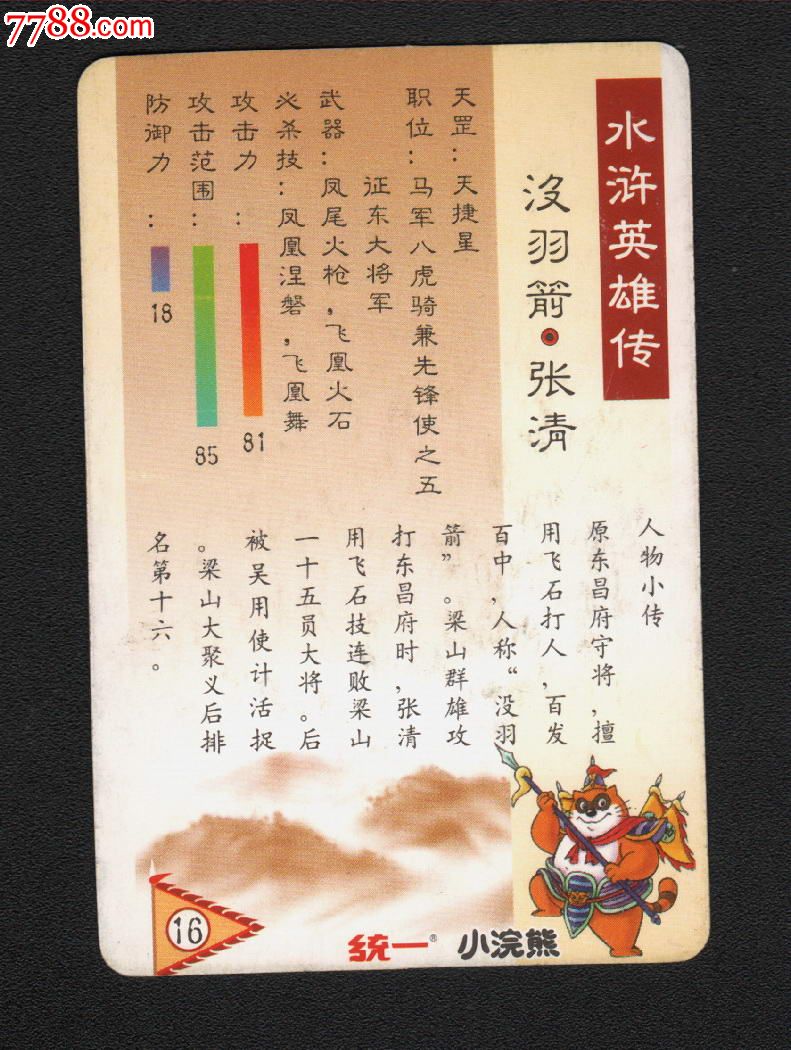 7788.com
水浒英雄传
没羽箭·张清
天罡：天捷星
职位：马军八虎骑兼先锋使之五
征东大将军
武器：凤尾火枪，飞凰火石
必杀技：凤凰涅磐，飞凰舞
攻击力：
81
攻击范围：
85
防御力：
18
人物小传
原东昌府守将，擅
用飞石打人，百发
百中，人称“没羽
箭”。梁山群雄攻
打东昌府时，张清
用飞石技连败梁山
一十五员大将。后
被吴用使计活捉
。梁山大聚义后排
名第十六。
16
统一®
小浣熊